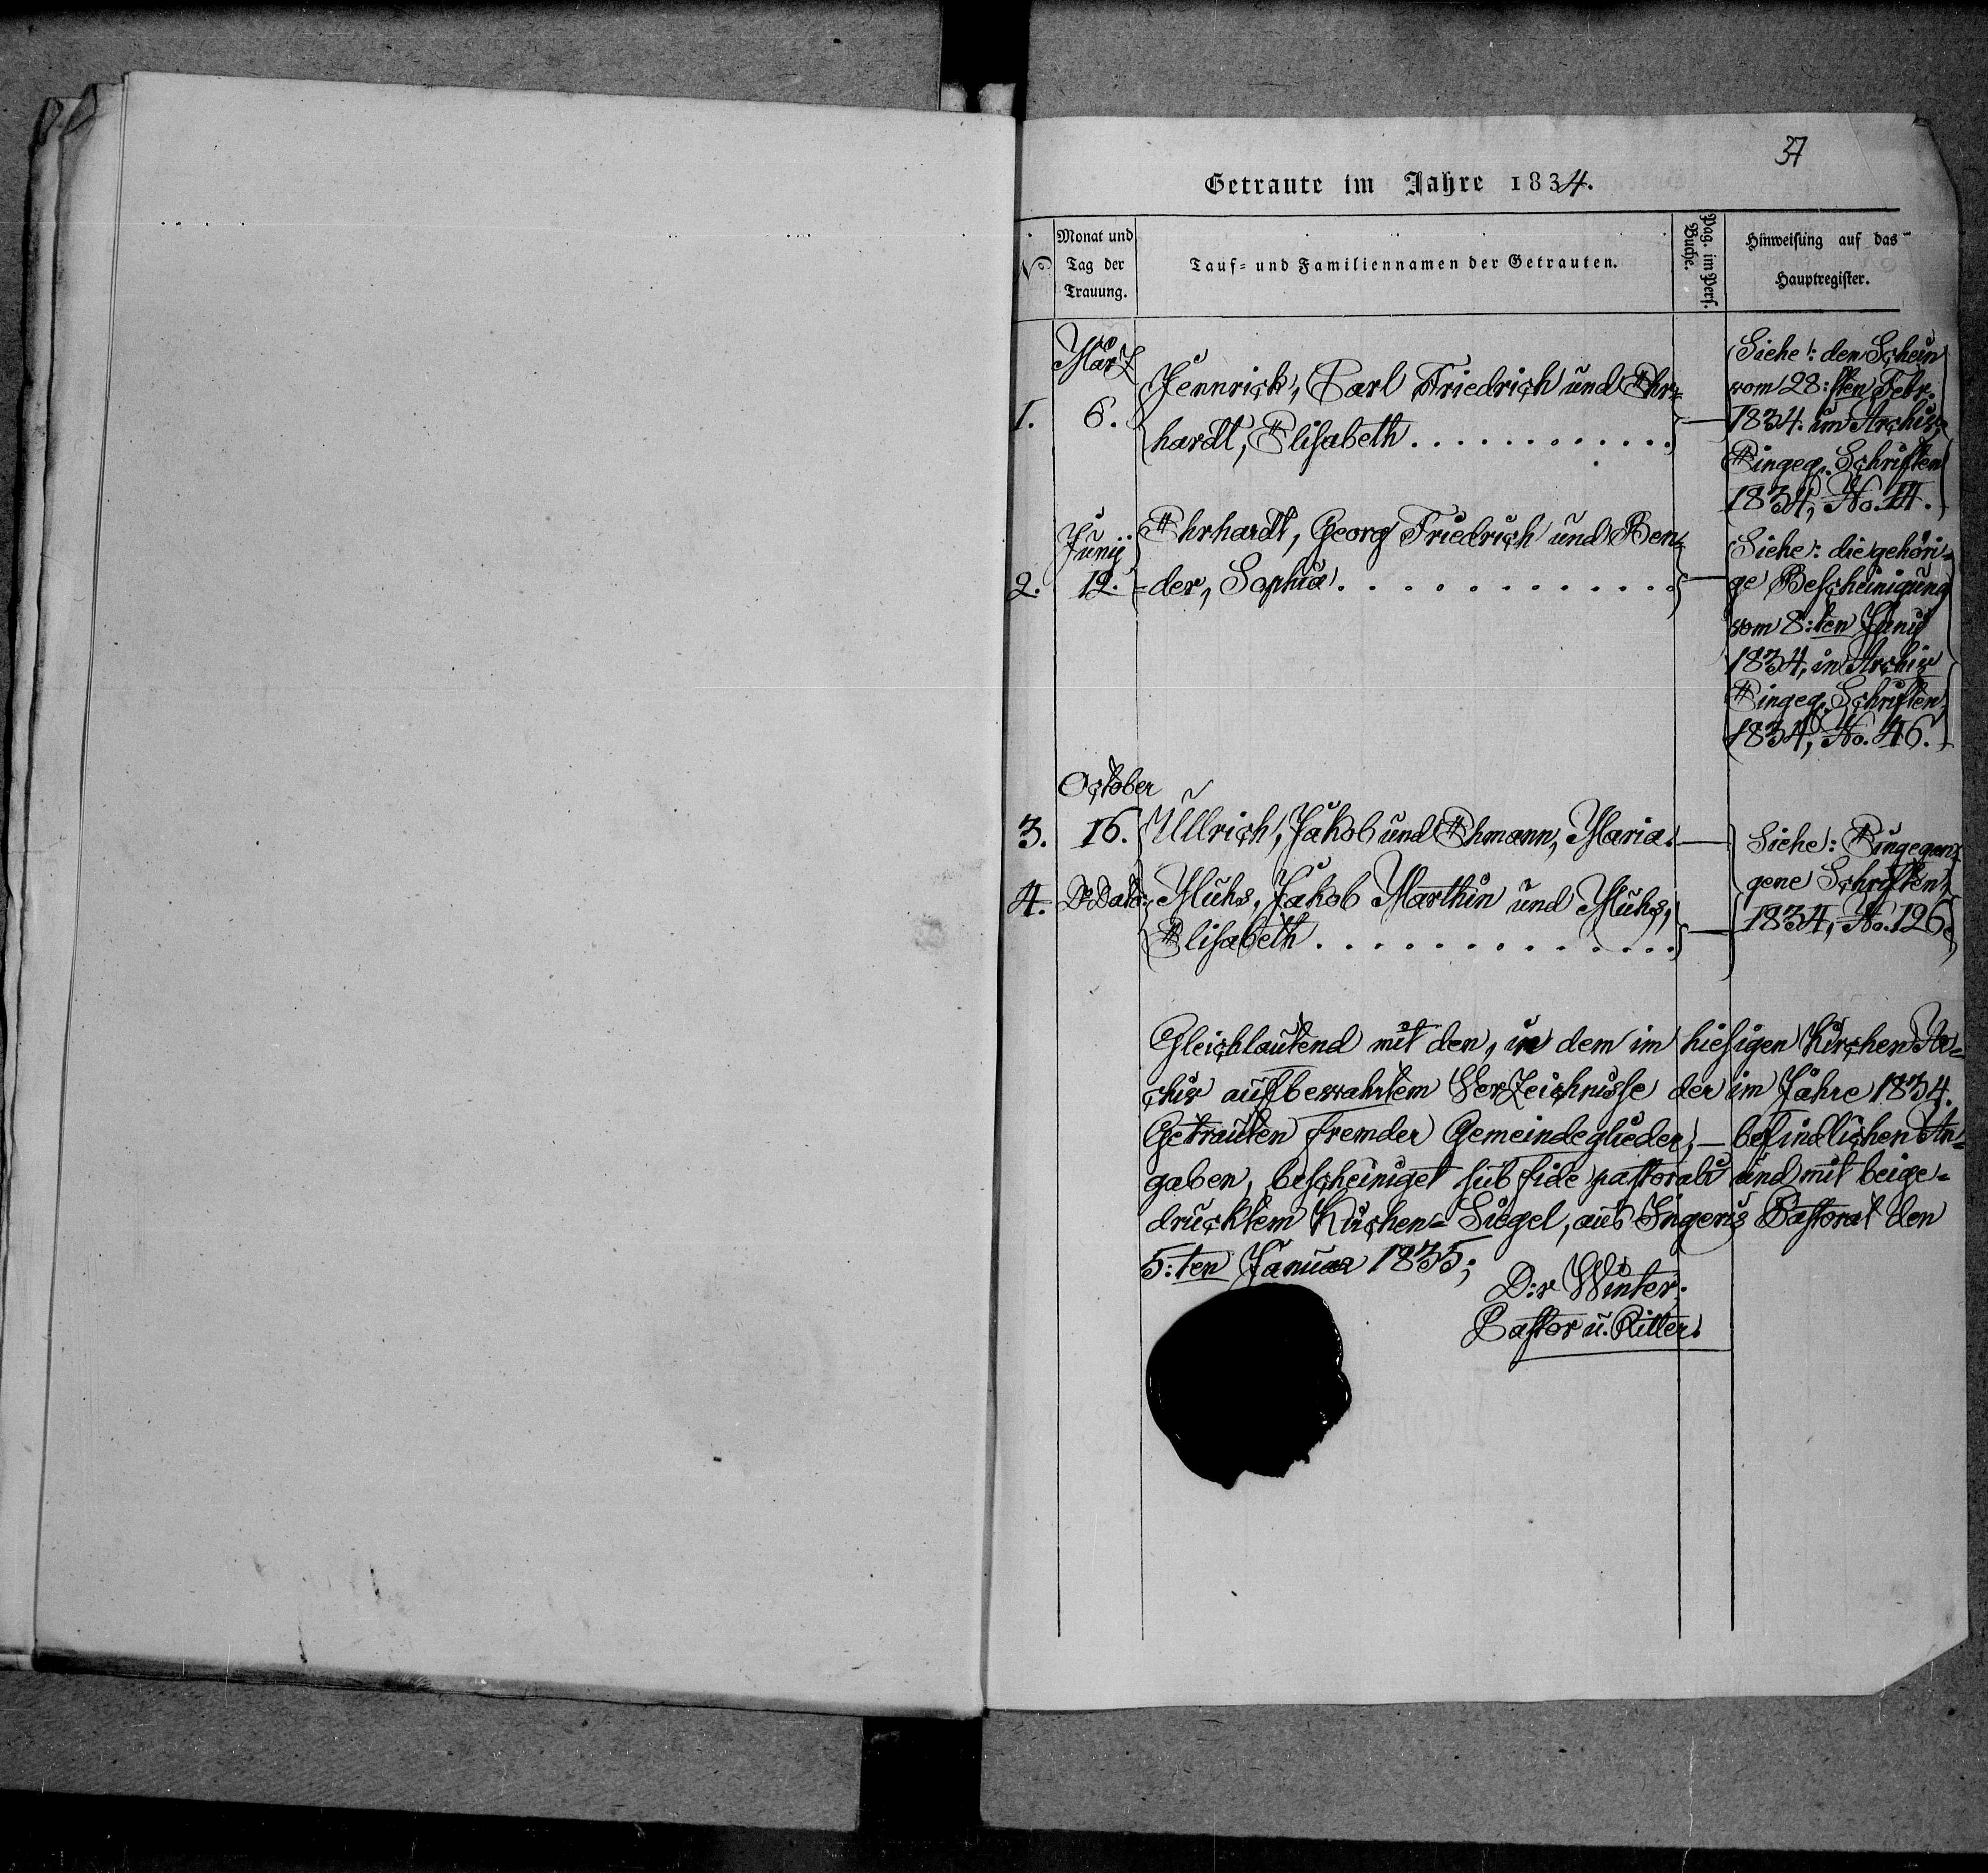 37
Getraute im Jahre 1834.
No
Monat und
Tag der
Trauung.
Tauf- und Familiennamen der Getrauten.
Pag. im Pers.
Buche.
Hinweisung auf das
Hauptregister.
März
1. 6.
Jennrich, Carl Friedrich und Ehr-
hardt, Elisabeth . . . . . . . . . . . .
Siehe: den Schein
vom 28:sten Febr.
1834. im Archiv,
Eingeg. Schriften
1834, No. 14.
Junij
2. 12.
Ehrhardt, Georg Friedrich und Ben-
=der, Sophia . . . . . . . . . . . .
Siehe: die gehöri-
ge Bescheinigung
vom 8:ten Junij
1834, in Archiv
Eingeg. Schriften,
1834, No. 46.
October
3. 16. Ullrich, Jakob und Ehmann, Maria.
4. De Dato: Muhs, Jakob Marthin und Muhs,
Elisabeth . . . . . . . . . . . . . .
Siehe: Eingegan-
gene Schriften
1834, No. 126
Gleichlautend mit den, in dem im hiesigen Kirchen Ar-
chiv aufbewahrtem Verzeichnisse der im Jahre 1834.
Getrauten fremder Gemeindeglieder, — befindlichen An-
gaben, bescheiniget sub fide pastorali und mit beige-
drucktem Kirchen-Siegel, aus Ingeris Pastorat den
5:ten Januar 1835;
D:r Winter.
Pastor u. Ritter.